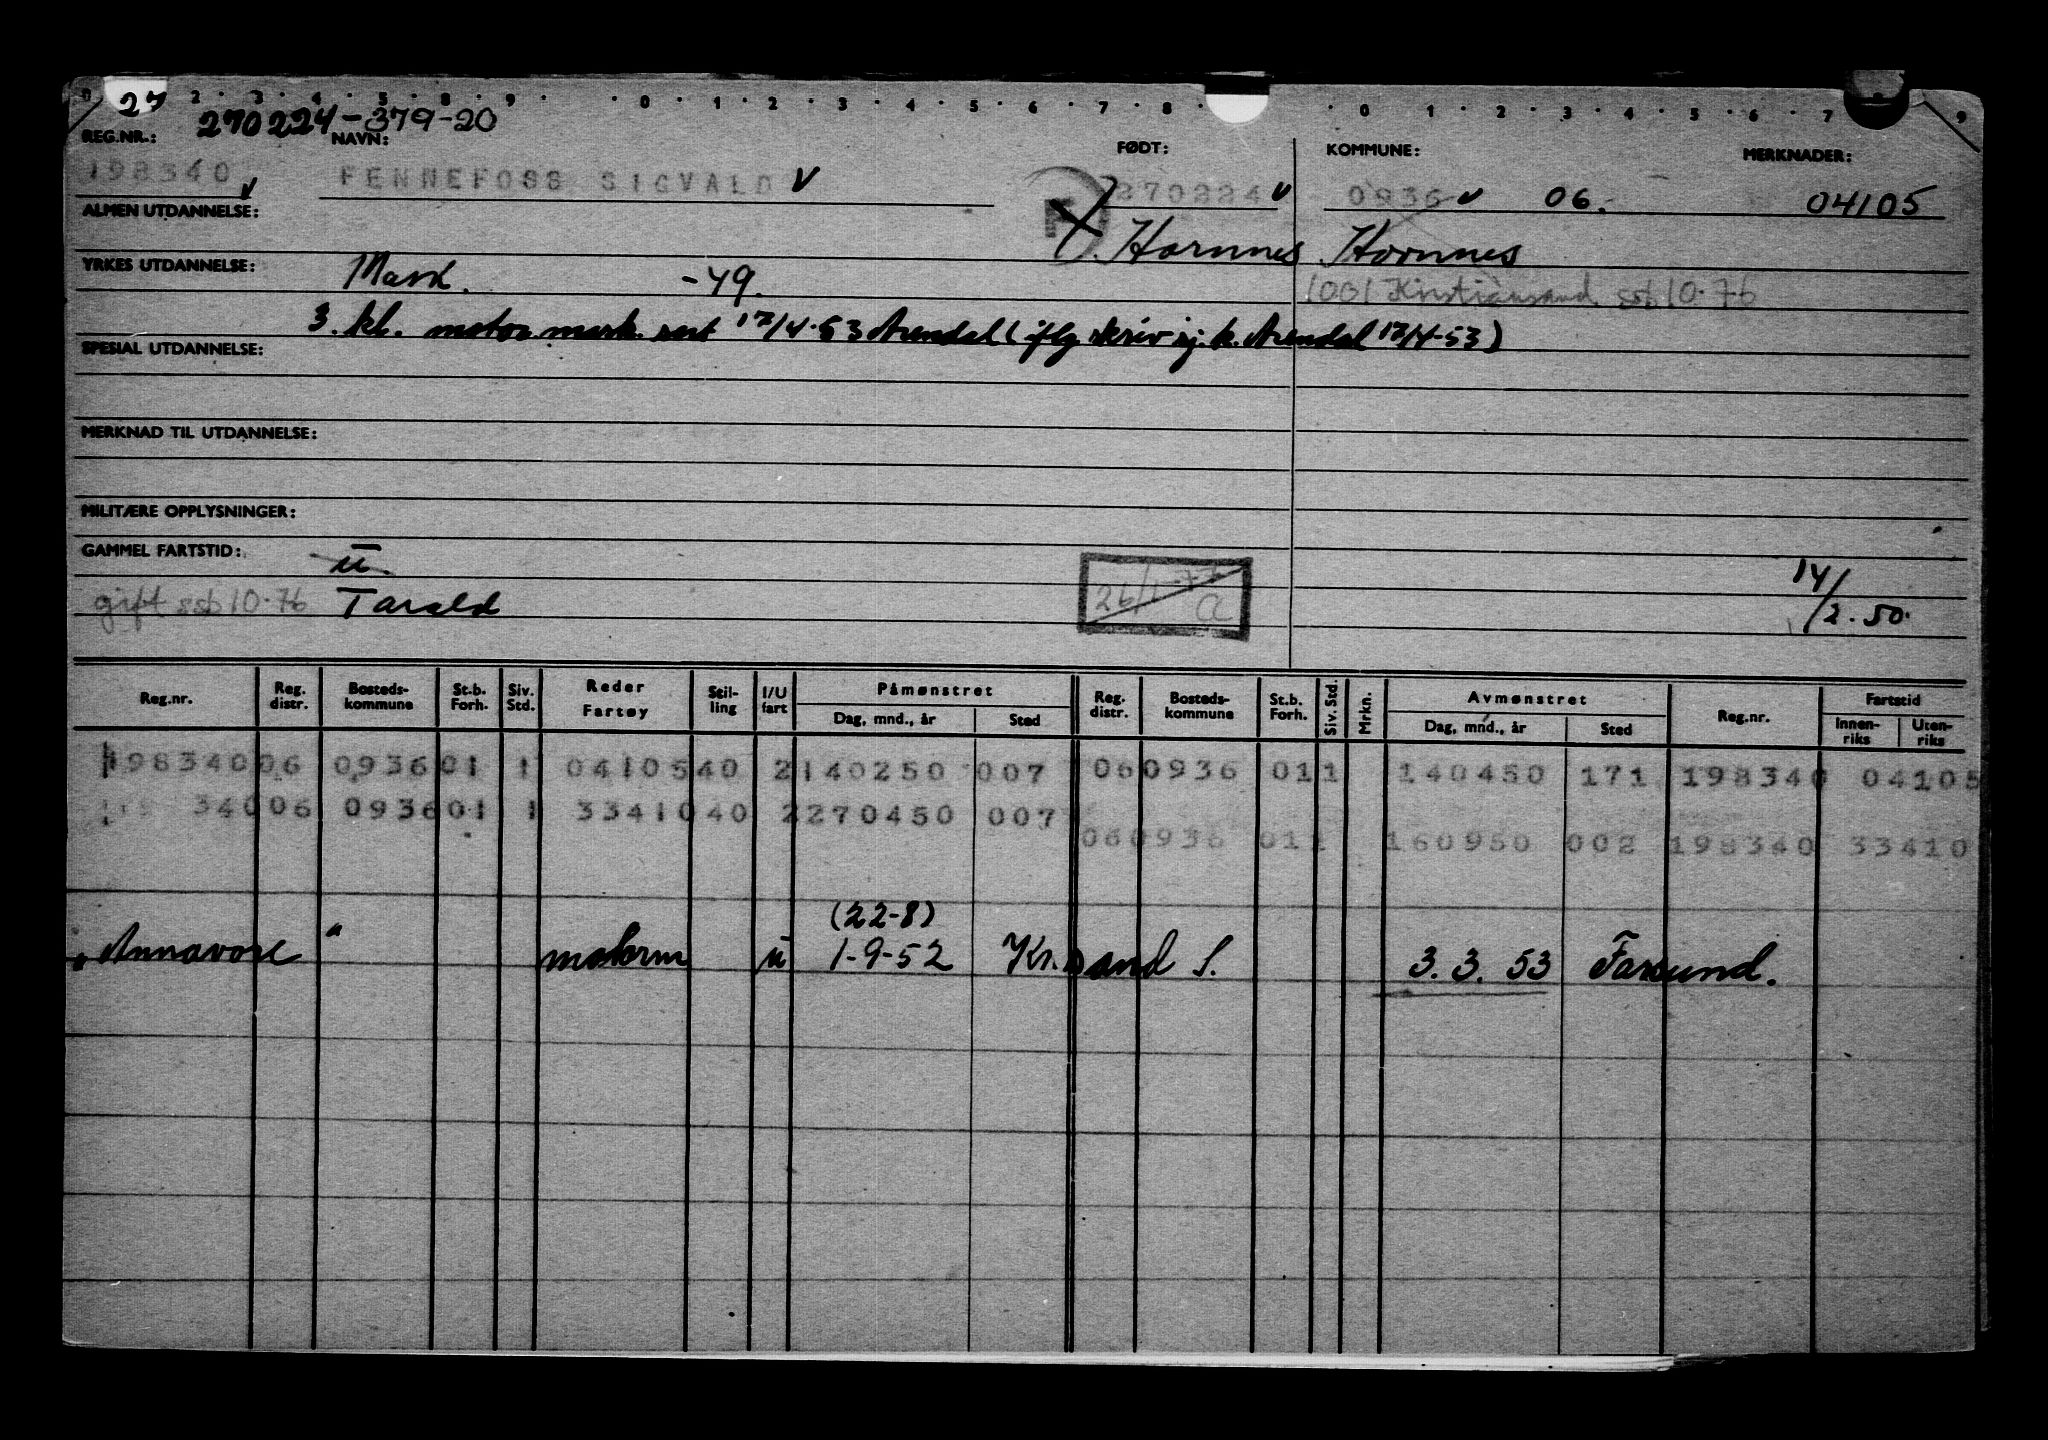 0 27 2 · 3 · 4 · 5 · 8 · 9 · · 0 · 1 · 2 · 3 · 4 · 5 · 6 · 7 · 8 · · 0 · 1 · 2 · 3 · 4 · 5 · 6 · 7 9
270224-379-20
REG.NR.: NAVN: FØDT: KOMMUNE: MERKNADER:
198340 v FENNEFOSS SIGVALD v 270224 v 0936 v 06. 04105
ALMEN UTDANNELSE: Hornnes Hornnes
YRKES UTDANNELSE: Mask. -49. 1001 Kristiansand ssb 10-76
3. kl. motor mask. sert 17/4-53 Arendal (iflg skriv sj. k. Arendal 17/4-53)
SPESIAL UTDANNELSE:
MERKNAD TIL UTDANNELSE:
MILITÆRE OPPLYSNINGER:
GAMMEL FARTSTID: u. 14/2.50.
gift ssb 10-76 Tarald
Reg.nr. Reg. distr. Bosteds-kommune St.b. Forh. Siv. Std. Reder Fartøy Stil-ling I/U fart Påmønstret Dag, mnd., år Sted Reg. distr. Bosteds-kommune St.b. Forh. Siv. Std. Mrkn. Avmønstret Dag, mnd., år Sted Reg.nr. Fartstid Innen-riks Uten-riks
198340 06 0936 01 1 04105 40 2 140250 007 06 0936 01 1 140450 171 198340 04105
340 06 0936 01 1 33410 40 2 270450 007
06 0936 01 1 160950 002 198340 33410
(22-8)
"Annavore" maskm u 1-9-52 Kr.sand S. 3.3.53 Farsund.